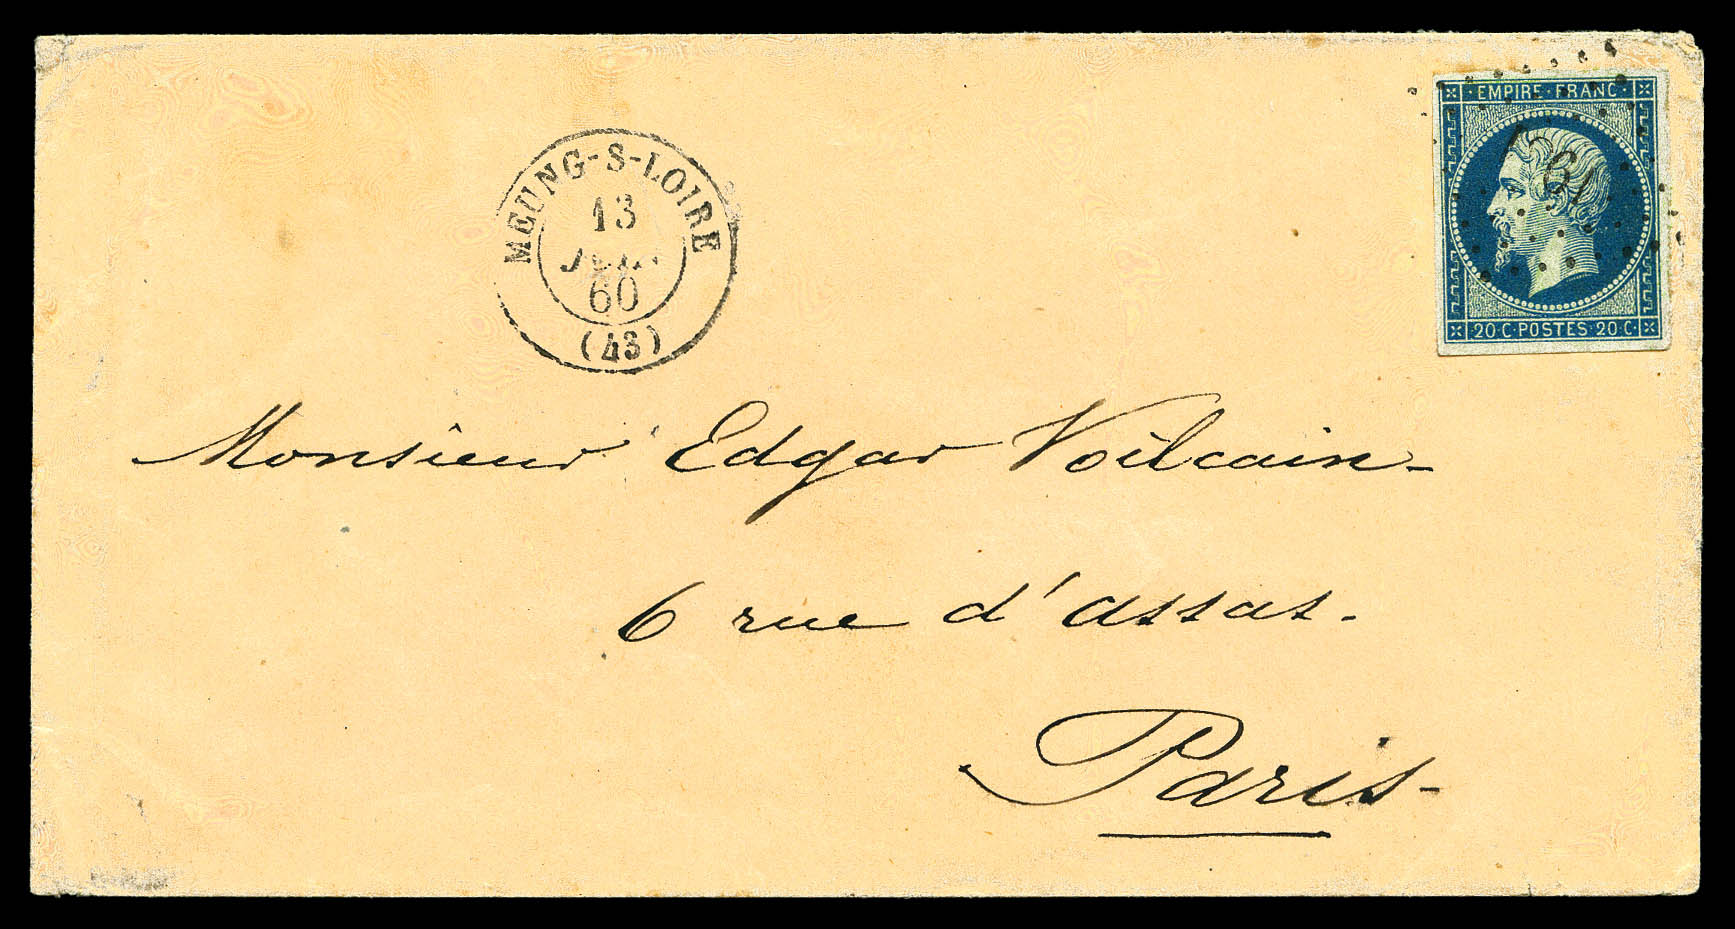 EMPIRE·FRANC·
MEUNG-S-LOIRE
13
60
(43)
20·C·POSTES·20·C·
Monsieur Edgar Voilcain-
6 rue d'assas.
Paris-